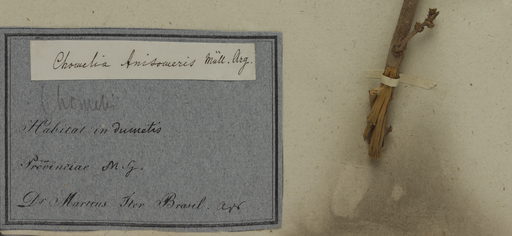 Chomelia Anisomeris Müll. Arg.
Chomeli
Habitat in dumetis
Provinciae M. G.
Dr Martius Iter Brasil.